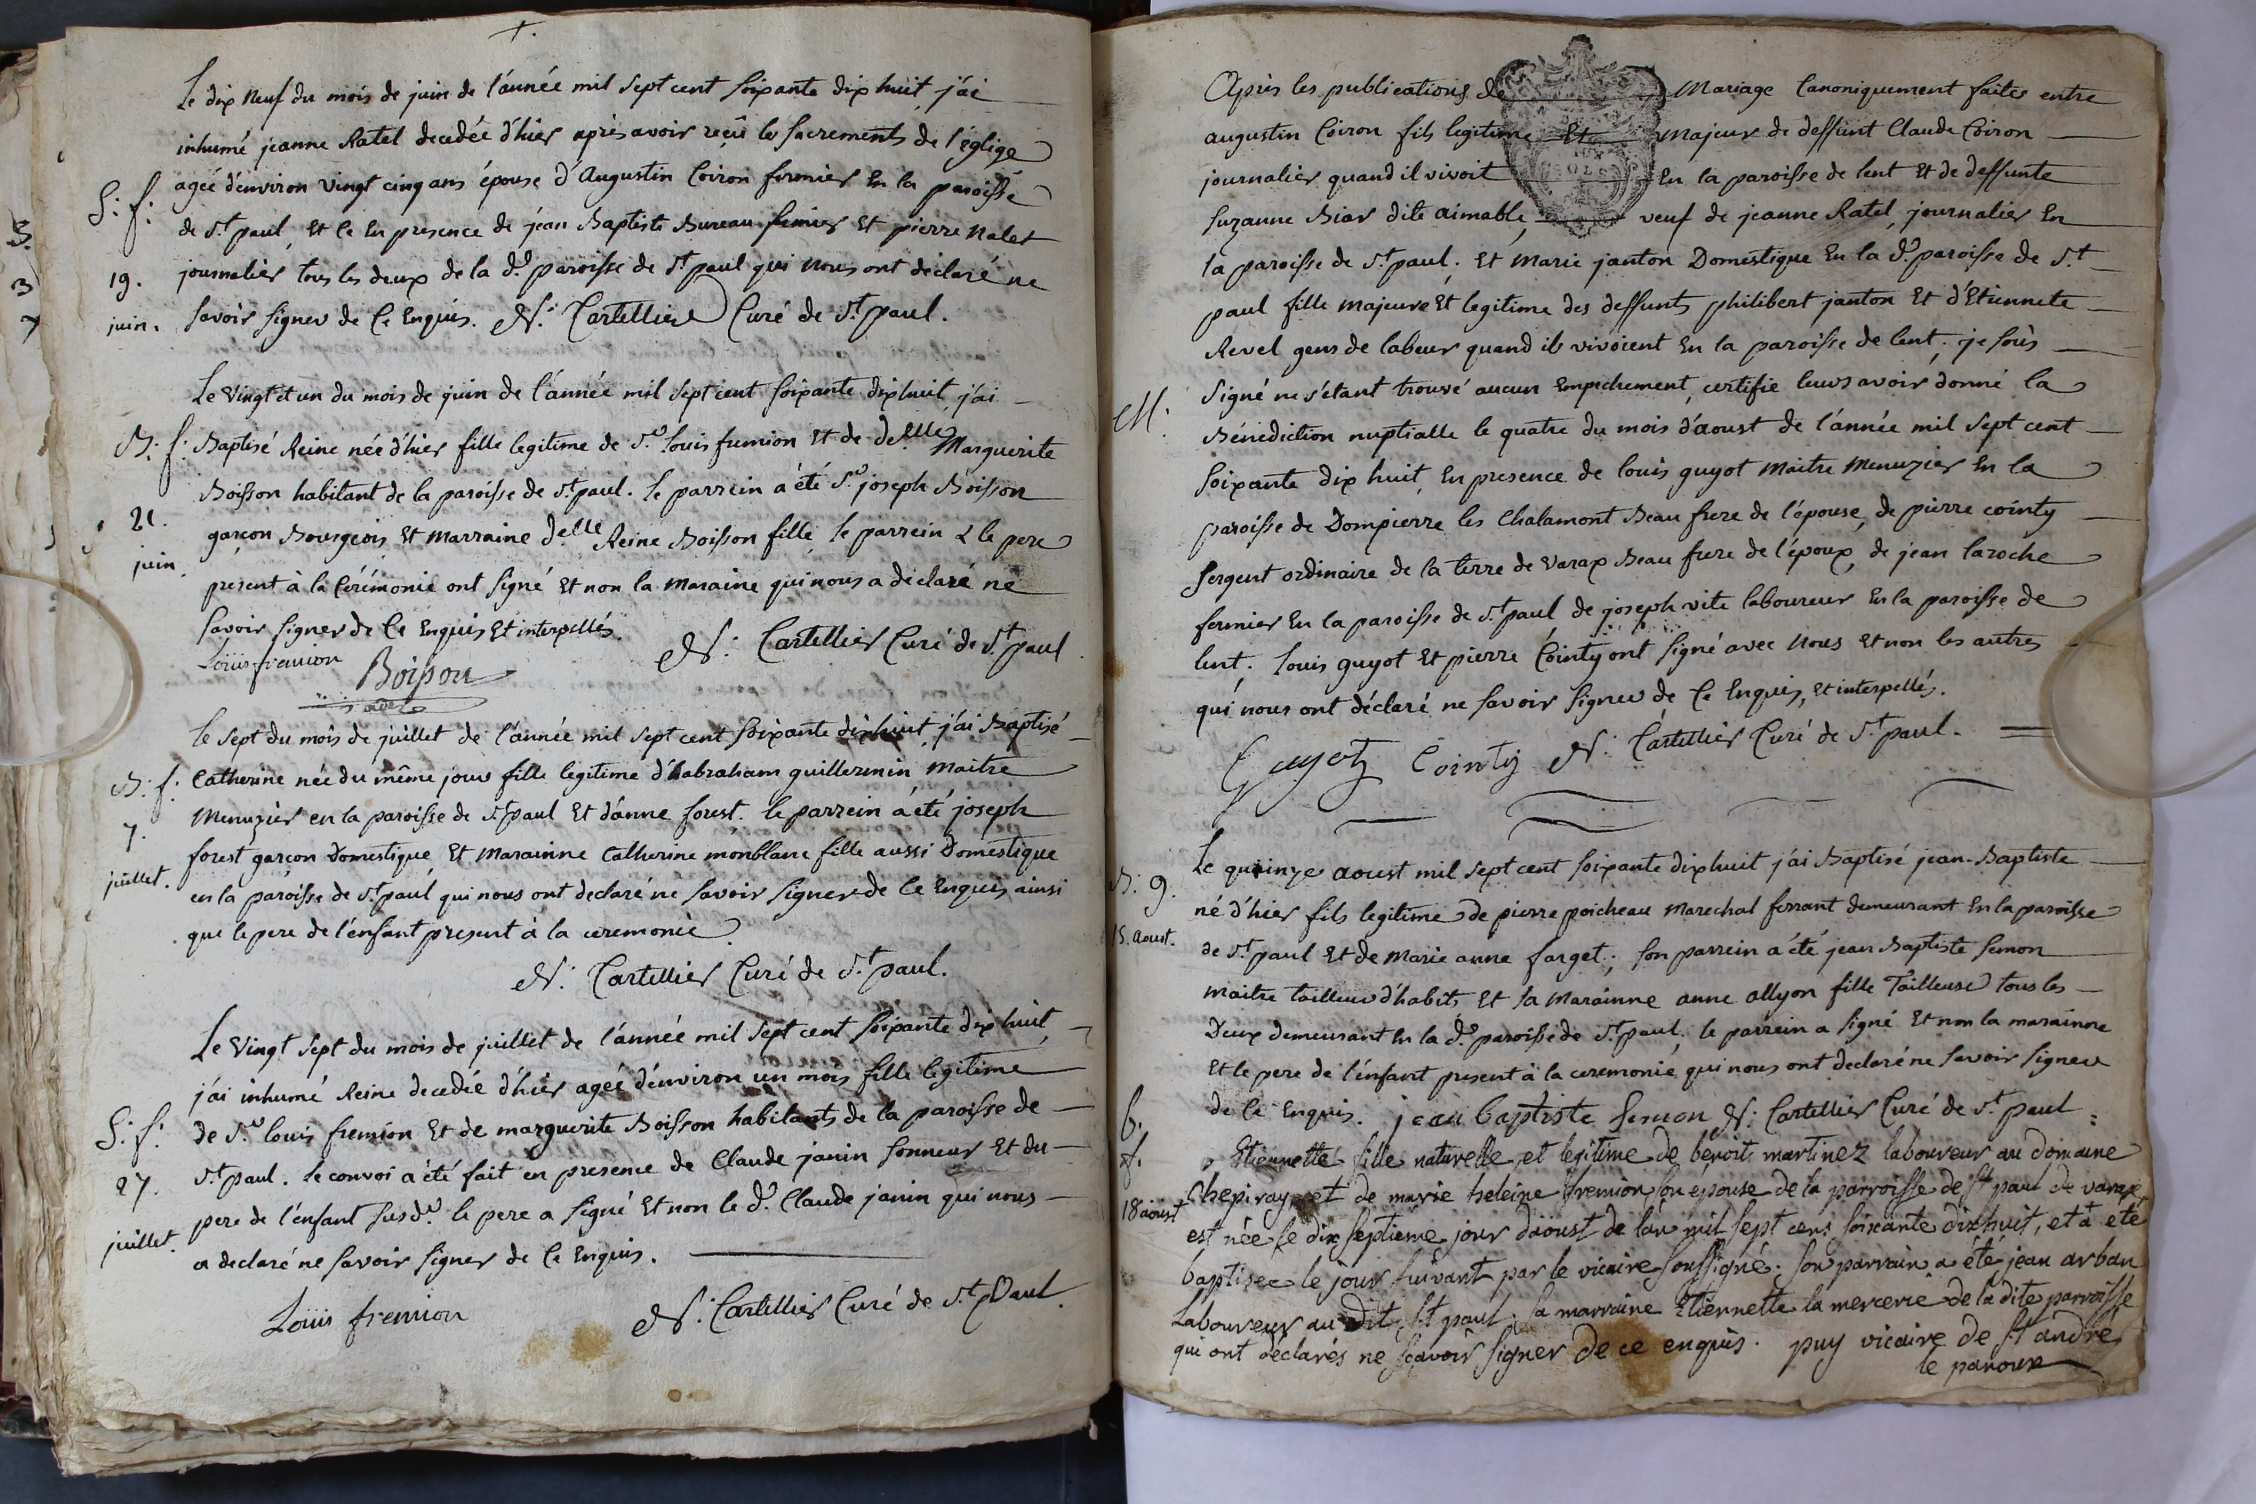 +.
Le dix neuf du mois de juin de l'année mil sept cent soixante dix huit j'ai
inhumé jeanne Ratel decedée d'hier après avoir reçû les sacrements de l'église
S: f: ageé d'environ vingt cinq ans épouse d'Augustin Coiron fermier En la paroisse
de St. paul, Et ce En presence de jéan Baptiste Bureau fermier Et pierre Nalet
19. journalier tous les deux de la de. paroisse de St. paul qui nous ont déclaré ne
juin. savoir signer de Ce Enquis. N: Cartellier Curé de St. paul.
Le vingt et un du mois de juin de l'année mil sept cent soixante dixhuit j'ai
B: f: Baptisé Reine née d'hier fille legitime de Sr. louis fremion Et de delle Marguerite
Boisson habitant de la paroisse de St. paul. le parrein a été Sr. joseph Boisson
21. garçon Bourgeois Et marraine delle Reine Boisson fille, le parrein & le pere
juin. present à la Cérémonie ont signé Et non la maraine qui nous a déclaré ne
savoir signer de Ce Enquis Et interpellés. N: Cartellier Curé de St. paul.
Loüis fremion Boisson
le sept du mois de juillet de l'année mil sept cent soixante dixhuit j'ai Baptisé
B: f. Catherine née du même jour fille legitime d'habraham guillermin Maitre
7. Menuzier en la paroisse de St. paul Et d'anne forest. le parrein a été joseph
forest garçon Domestique Et Marainne Catherine monblanc fille aussi Domestique
juillet. en la paroisse de St. paul qui nous ont declaré ne savoir signer de Ce Enquis ainsi
que le pere de l'enfant present à la ceremonie.
N: Cartellier Curé de St. paul.
Le vingt sept du mois de juillet de l'année mil sept cent soixante dix huit,
j'ai inhumé Reine decedée d'hier ageé d'environ un mois fille legitime
S: f: de Sr. louis fremion Et de marguerite Boisson habitants de la paroisse de
27. St. paul. le convoi a été fait en presence de Claude janin sonneur Et du
juillet. pere de l'enfant susdt. le pere a signé Et non le dt. Claude janin qui nous
a declaré ne savoir signer de Ce Enquis.
Loüis fremion N: Cartellier Curé de St. Paul.
Après les publications de Mariage Canoniquement faites entre
augustin Coiron fils legitime Et Majeur de deffunt Claude Coiron
journalier quand il vivoit En la paroisse de lent Et de deffunte
suzanne Biar dite aimable, veuf de jeanne Ratel, journalier En
la paroisse de St. paul. Et Marie janton Domestique En la de. paroisse de St.
paul fille majeure Et legitime des deffunts philibert janton Et d'Etiennete
Revel gens de labeur quand ils vivoient En la paroisse de lent; je sous
M. signé ne s'étant trouvé aucun Empechement, certifie leurs avoir donné la
Bénédiction nuptialle le quatre du mois d'aoust de l'année mil sept cent
soixante dix huit, En presence de louis guyot Maitre Menuzier En la
paroisse de Dompierre les Chalamont Beau frere de l'épouse, de pierre cointy
sergent ordinaire de la terre de varax Beau frere de l'époux, de jean laroche
fermier En la paroisse de St. paul, de joseph vite laboureur En la paroisse de
lent. louis guyot Et pierre Cointy ont signé avec nous Et non les autres
qui nous ont déclaré ne savoir signer de Ce Enquis, Et interpellés.
Guyot Cointy N: Cartellier Curé de St. paul.
Le quinze aoust mil sept cent soixante dixhuit j'ai Baptisé jean-Baptiste
B: g. né d'hier fils legitime de pierre poicheau Marechal ferrant demeurant En la paroisse
15. aoust. de St. paul Et de Marie anne farget; son parrein a été jean Baptiste semon
maitre tailleur d'habits Et sa Marainne anne allyon fille Tailleuse tous les
Deux demeurant En la de. paroisse de St. paul; le parrein a signé Et non la marainne
Et le pere de l'enfant present à la ceremonie qui nous ont declaré ne savoir signer
de Ce Enquis. jean baptiste semon N: Cartellier Curé de St. paul.
b. f. Etiennette fille naturelle et legitime de benoit martinez laboureur au domaine
Chepiray et de marie heleine fremion son epouse de la parroisse de st paul de varax
18 aoust est née le dix septieme jour daoust de lan mil sept cens soixante dixhuit, et a eté
baptisee le jour suivant par le vicaire soussigné. son parrain a été jean arban
Laboureur au dit st paul. sa marraine Etiennette la mercerie de la dite parroisse
qui ont declarés ne sçavoir signer de ce enquis. puy vicaire de st andré
le panoux